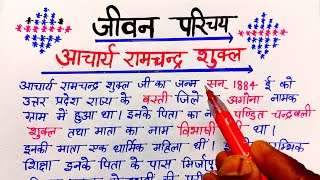 जीवन परिचय
आचार्य रामचन्द्र शुक्ल
आचार्य रामचन्द्र शुक्ल जी का जन्म सन् 1884 ई को
उत्तर प्रदेश राज्य के बस्ती जिले अगोना नामक
ग्राम में हुआ था। इनके पिता का नाम पण्डित चन्द्रबली
शुक्ल तथा माता का नाम विभाषी थी था।
इनकी माता एक धार्मिक महिला थीं।
शिक्षा इनके पिता के पास